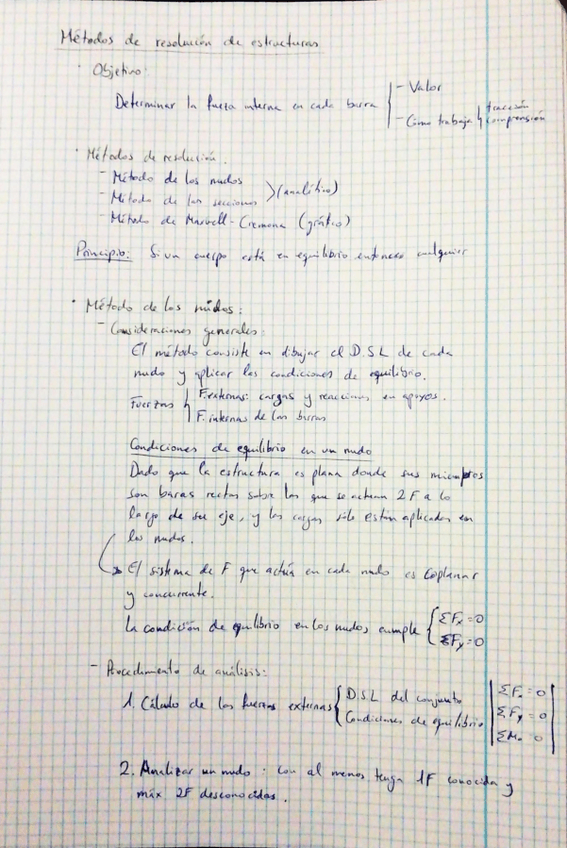 Métodos de resolución de estructuras
· Objetivo:
Determinar la fuerza interna en cada barra { - Valor
- Cómo trabaja { tracción
comprensión
· Métodos de resolución.
- Método de los nudos
- Método de las secciones > (analítico)
- Método de Maxwell-Cremona (gráfico)
Principio: Si un cuerpo está en equilibrio entonces cualquier
· Método de los nudos:
- Consideraciones generales:
El método consiste en dibujar el D.S.L de cada
nudo y aplicar las condiciones de equilibrio.
Fuerzas { F. externas: cargas y reacciones en apoyos.
F. internas de las barras
Condiciones de equilibrio en un nudo
Dado que la estructura es plana donde sus miembros
son barras rectas sobre las que se actúan 2 F a lo
largo de su eje, y las cargas sólo están aplicadas en
los nudos.
→ El sistema de F que actúa en cada nudo es coplanar
y concurrente.
La condición de equilibrio en los nudos cumple { ΣFx = 0
ΣFy = 0
- Procedimiento de análisis:
1. Cálculo de las fuerzas externas { D.S.L del conjunto
Condiciones de equilibrio | ΣFx = 0
ΣFy = 0
ΣMo = 0 |
2. Analizar un nudo: con al menos tenga 1F conocida y
máx 2F desconocidas.